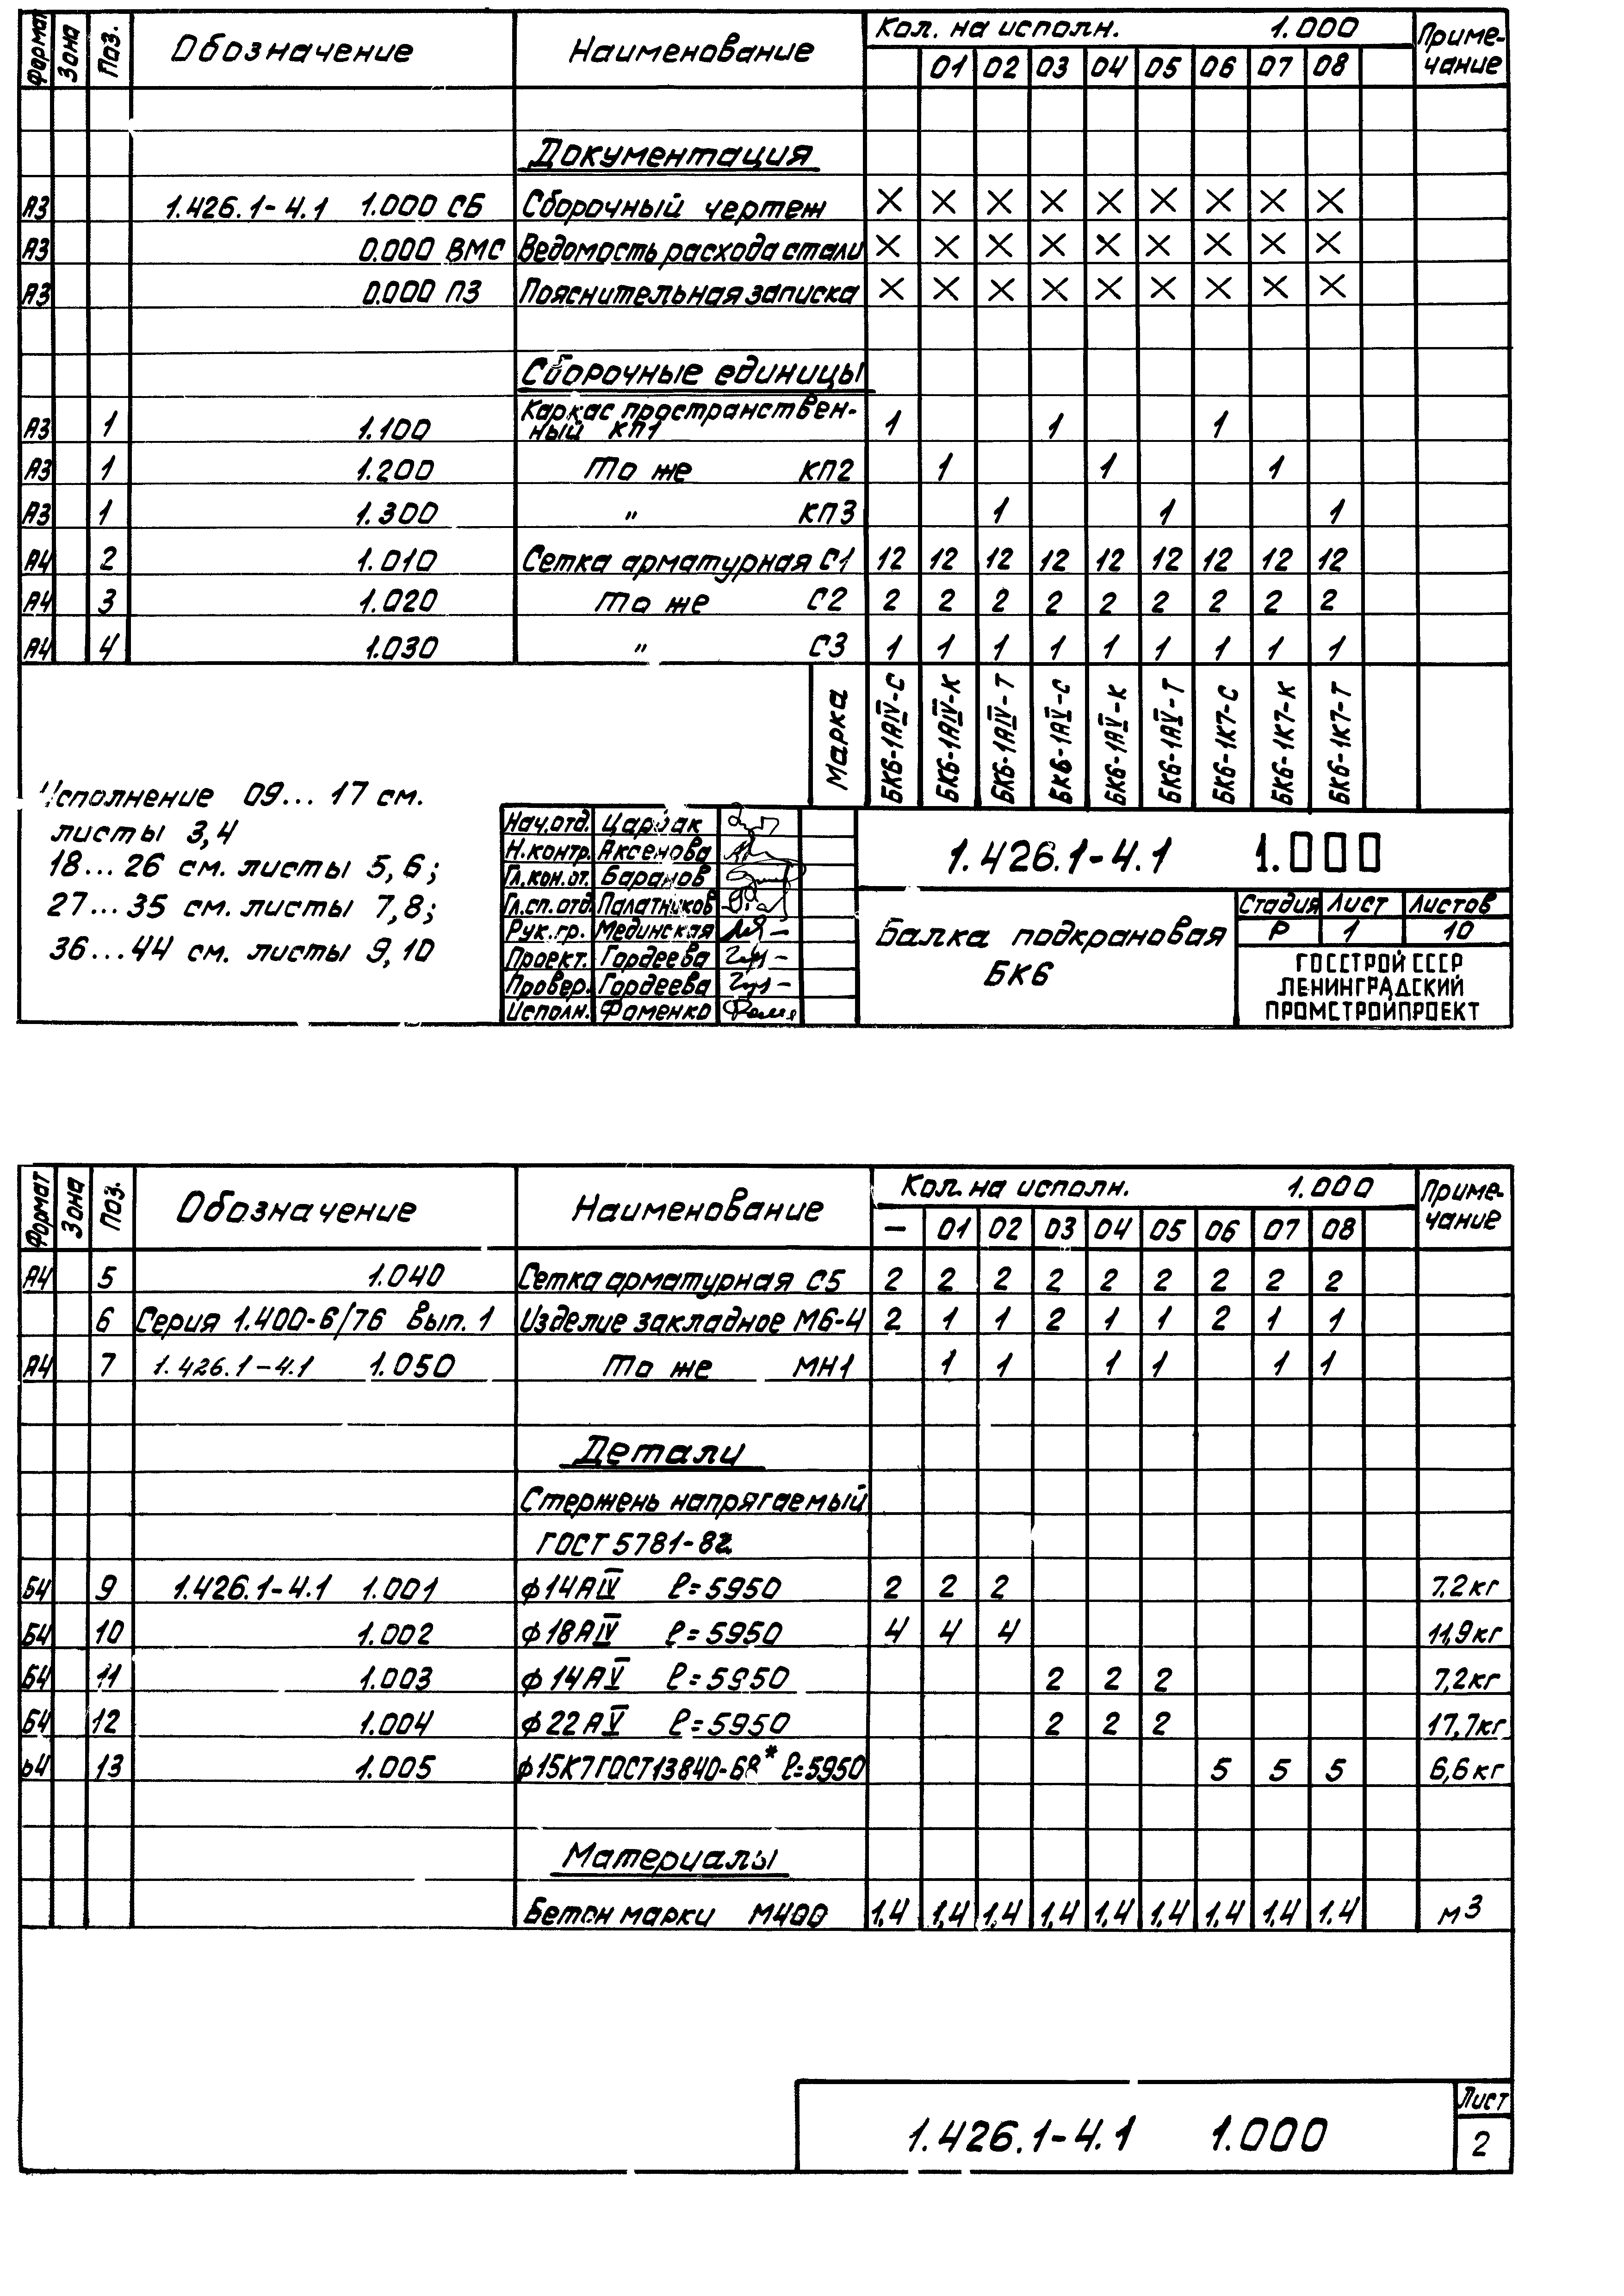 Формат Зона Поз. Обозначение Наименование Кол. на исполн. 1.000 Приме-
чание
01 02 03 04 05 06 07 08
Документация
А3 1.426.1-4.1 1.000 СБ Сборочный чертеж × × × × × × × × ×
А3 0.000 ВМС Ведомость расхода стали × × × × × × × × ×
А3 0.000 ПЗ Пояснительная записка × × × × × × × × ×
Сборочные единицы
Каркас пространствен-
А3 1 1.100 ный КП1 1 1 1
А3 1 1.200 То же КП2 1 1 1
А3 1 1.300 " КП3 1 1 1
А4 2 1.010 Сетка арматурная С1 12 12 12 12 12 12 12 12 12
А4 3 1.020 То же С2 2 2 2 2 2 2 2 2 2
А4 4 1.030 " С3 1 1 1 1 1 1 1 1 1
Марка БК6-1АIV-С БК6-1АIV-К БК6-1АIV-Т БК6-1АV-С БК6-1АV-К БК6-1АV-Т БК6-1К7-С БК6-1К7-К БК6-1К7-Т
Исполнение 09...17 см.
листы 3,4
18...26 см. листы 5,6;
27...35 см. листы 7,8;
36...44 см. листы 9,10
Нач.отд.
Н.контр. Аксенова
Гл.кон.от. Баранов
Гл.сп.отд. Палатников
Рук.гр. Мединская
Проект. Гордеева
Провер. Гордеева
Исполн. Фоменко
1.426.1-4.1 1.000
Балка подкрановая
БК6
Стадия Лист Листов
Р 1 10
ГОССТРОЙ СССР
ЛЕНИНГРАДСКИЙ
ПРОМСТРОЙПРОЕКТ
Формат Зона Поз. Обозначение Наименование Кол. на исполн. 1.000 Приме-
чание
– 01 02 03 04 05 06 07 08
А4 5 1.040 Сетка арматурная С5 2 2 2 2 2 2 2 2 2
6 Серия 1.400-6/76 Вып. 1 Изделие закладное М6-4 2 1 1 2 1 1 2 1 1
А4 7 1.426.1-4.1 1.050 То же МН1 1 1 1 1 1 1
Детали
Стержень напрягаемый
ГОСТ 5781-82
Б4 9 1.426.1-4.1 1.001 ф14АIV ℓ=5950 2 2 2 7.2кг
Б4 10 1.002 ф18АIV ℓ=5950 4 4 4 11,9кг
Б4 11 1.003 ф14АV ℓ=5950 2 2 2 7,2кг
Б4 12 1.004 ф22АV ℓ=5950 2 2 2 17,7кг
Б4 13 1.005 ф15К7 ГОСТ13840-68* ℓ=5950 5 5 5 6,6кг
Материалы
Бетон марки М400 1,4 1,4 1,4 1,4 1,4 1,4 1,4 1,4 1.4 м3
1.426.1-4.1 1.000
Лист
2